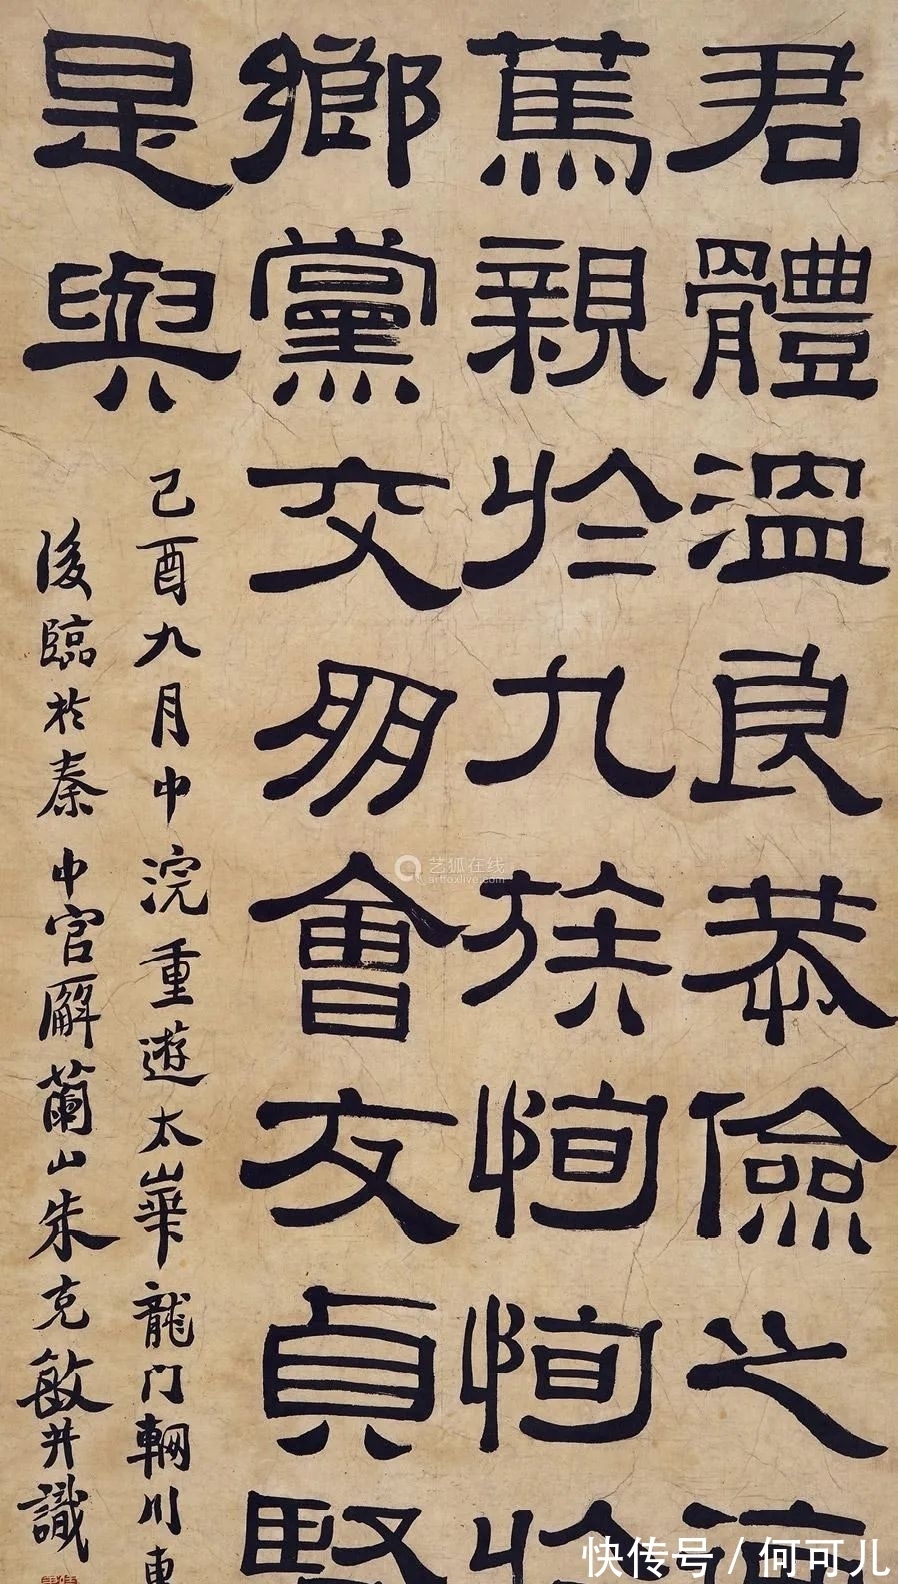 君體溫良恭儉之
篤親於九族恂恂於
鄉黨交朋會友貞賢
是與
己酉九月中浣重遊太華龍门輞川東
後臨於秦中官廨蘭山朱克敏并識
艺狐在线
artfoxlive.com
快传号 / 何可儿